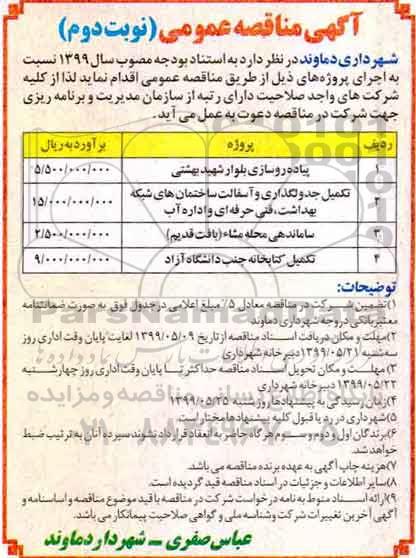 آگهی مناقصه عمومی (نوبت دوم)
شهرداری دماوند در نظر دارد به استناد بودجه مصوب سال ۱۳۹۹ نسبت
به اجرای پروژه‌های ذیل از طریق مناقصه عمومی اقدام نماید لذا از کلیه
شرکت های واجد صلاحیت دارای رتبه از سازمان مدیریت و برنامه ریزی
جهت شرکت در مناقصه دعوت به عمل می آید.
ردیف پروژه برآورد به ریال
۱ پیاده روسازی بلوار شهید بهشتی ۵/۵۰۰/۰۰۰/۰۰۰
۲ تکمیل جدولگذاری و آسفالت ساختمان های شبکه بهداشت، فنی حرفه ای و اداره آب ۱۵/۰۰۰/۰۰۰/۰۰۰
۳ ساماندهی محله مشاء (بافت قدیم) ۲/۵۰۰/۰۰۰/۰۰۰
۴ تکمیل کتابخانه جنب دانشگاه آزاد ۹/۰۰۰/۰۰۰/۰۰۰
توضیحات:
۱)تضمین شرکت در مناقصه معادل ۵٪ مبلغ اعلامی در جدول فوق به صورت ضمانتنامه
معتبر بانکی در وجه شهرداری دماوند
۲)مهلت و مکان دریافت اسناد مناقصه از تاریخ ۱۳۹۹/۰۵/۰۹ لغایت پایان وقت اداری روز
سه شنبه ۱۳۹۹/۰۵/۲۱ دبیرخانه شهرداری
۳) مهلت و مکان تحویل اسناد مناقصه حداکثر تا پایان وقت اداری روز چهارشنبه
۱۳۹۹/۰۵/۲۲ دبیرخانه شهرداری
۴)زمان رسیدگی به پیشنهادها روز شنبه ۱۳۹۹/۰۵/۲۵
۵)شهرداری در رد یا قبول کلیه پیشنهادها مختار است.
۶)برندگان اول و دوم و سوم هرگاه حاضر به انعقاد قرارداد نشوند سپرده آنان به ترتیب ضبط
خواهد شد.
۷)هزینه چاپ آگهی به عهده برنده مناقصه می باشد.
۸)سایر اطلاعات و جزئیات در اسناد مناقصه قید گردیده است.
۹)ارائه اسناد منوط به نامه درخواست شرکت در مناقصه با قید موضوع مناقصه و اساسنامه و
آگهی آخرین تغییرات شرکت وشناسه ملی و گواهی صلاحیت پیمانکار می باشد.
عباس صفری - شهردار دماوند
ParsNamadData